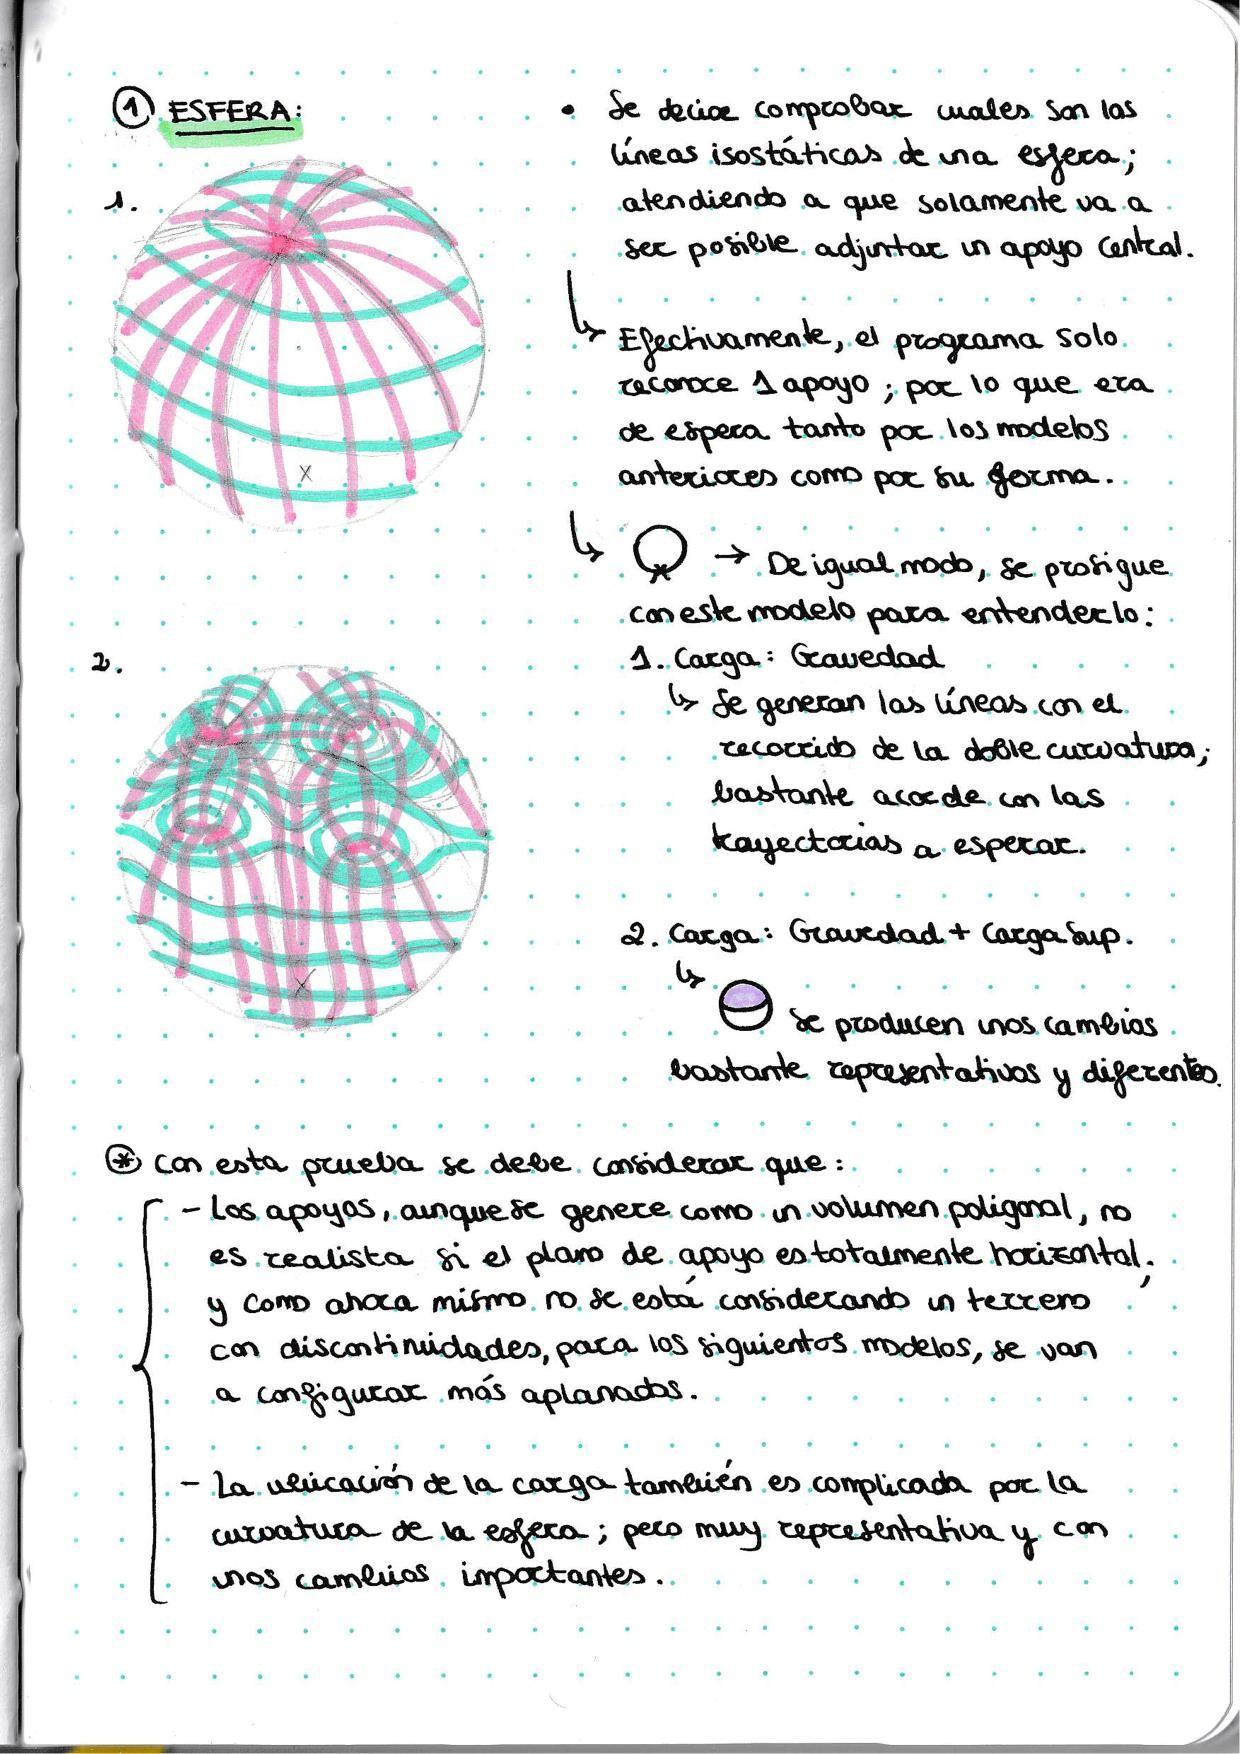 ① ESFERA:
1.
• Se decide comprobar cuales son las
líneas isostáticas de una esfera;
atendiendo a que solamente va a
ser posible adjuntar un apoyo central.
↳ Efectivamente, el programa solo
reconoce 1 apoyo; por lo que era
de espera tanto por los modelos
anteriores como por su forma.
x
↳ → De igual modo, se prosigue
con este modelo para entenderlo:
2.
1. Carga: Gravedad
↳ Se generan las líneas con el
recorrido de la doble curvatura;
bastante acorde con las
trayectorias a esperar.
2. Carga: Gravedad + Carga Sup.
↳ Se producen unos cambios
bastante representativos y diferentes.
x
⊛ Con esta prueba se debe considerar que:
- Los apoyos, aunque se genere como un volumen poligonal, no
es realista si el plano de apoyo es totalmente horizontal;
y como ahora mismo no se está considerando un terreno
con discontinuidades, para los siguientes modelos, se van
a configurar más aplanados.
- La ubicación de la carga también es complicada por la
curvatura de la esfera; pero muy representativa y con
unos cambios importantes.